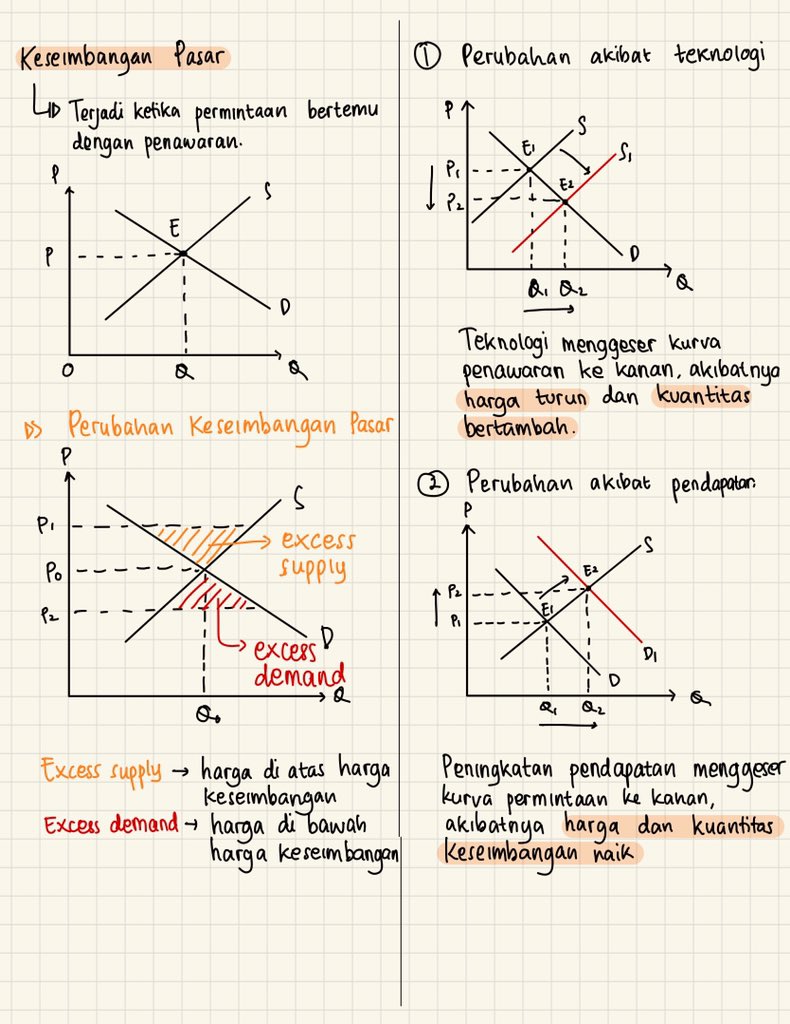 Keseimbangan Pasar
Terjadi ketika permintaan bertemu
dengan penawaran.
P
S
E
P
D
O
Q
Q
Perubahan Keseimbangan Pasar
P
S
P1
excess
supply
P0
P2
D
excess
demand
Q
Q0
Excess supply → harga di atas harga
keseimbangan
Excess demand → harga di bawah
harga keseimbangan
① Perubahan akibat teknologi
P
S
E1
S1
P1
E2
P2
D
Q
Q1 Q2
Teknologi menggeser kurva
penawaran ke kanan, akibatnya
harga turun dan kuantitas
bertambah.
② Perubahan akibat pendapatan.
P
S
E2
P2
E1
P1
D1
D
Q
Q1 Q2
Peningkatan pendapatan menggeser
kurva permintaan ke kanan,
akibatnya harga dan kuantitas
keseimbangan naik